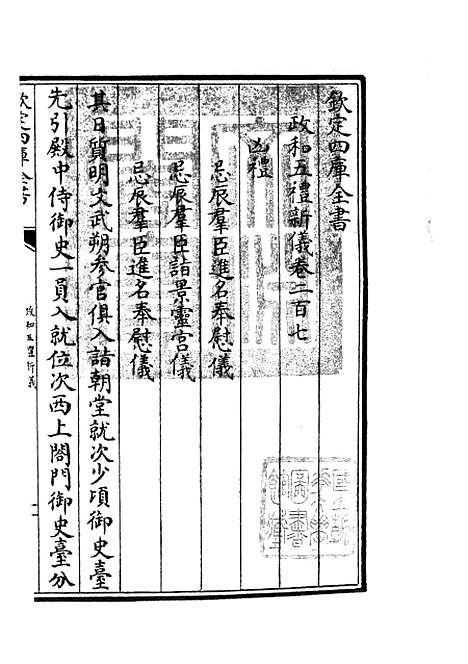 欽定四庫全書
政和五禮新儀卷二百七
凶禮
忌辰羣臣進名奉慰儀
忌辰羣臣詣景靈宮儀
忌辰羣臣進名奉慰儀
其日質明文武朔參官俱入詣朝堂就次少頃御史臺
先引殿中侍御史一員入就位次西上閤門御史臺分
欽定四庫全書
政和五禮新儀